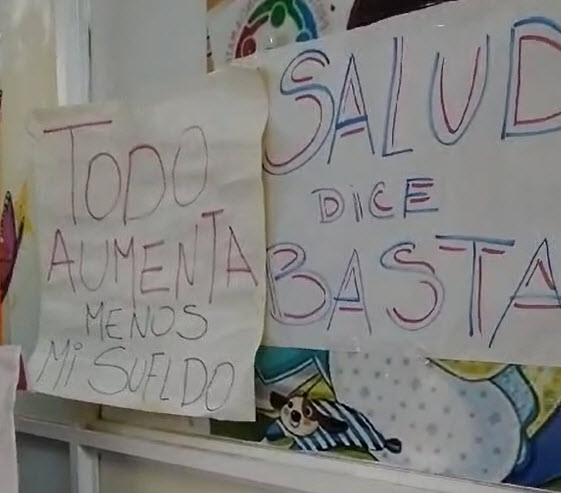 TODO
AUMENTA
MENOS
Mi SUELDO
SALUD
DiCE
BASTA